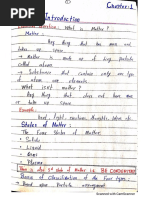 Chapter:1
Introduction
Question: What is Matter?
Matter:
Any thing that has mass and
takes up space.
Matter is made up of tiny particle
called atoms.
Substances that contain only one
type of atom is called
What isn't matter?
Any thing that has not mass and
take up space.
Example:
heat, light, emotions, thoughts, ideas etc
States of Matter:-
The Four States of Matter:
Solid
Liquid
Gas
Plasma
There is also 5th State of Matter i.e BE CONDENSATE
Basis of Classification of the Four types:-
Based upon Particle arrangement
Scanned with CamScanner